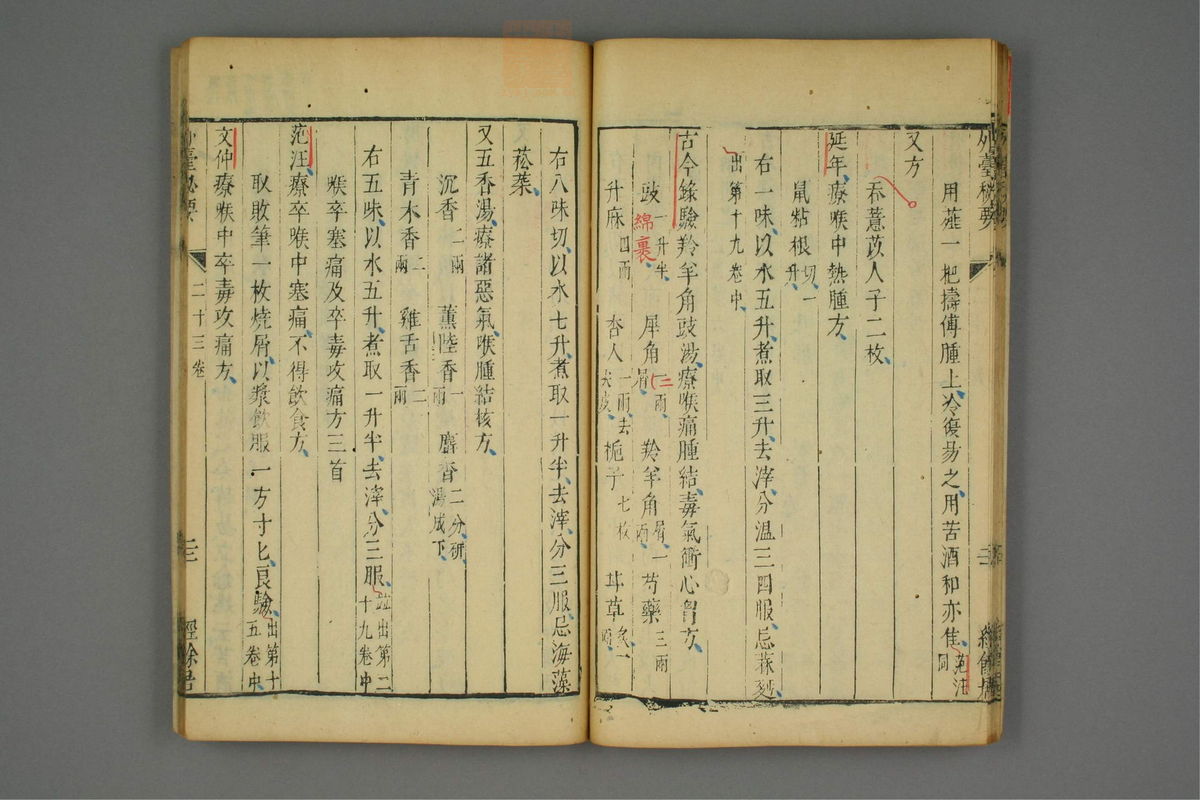 外臺秘要
用薤一把擣傅腫上冷復易之用苦酒和亦佳范汪同
又方
吞薏苡人子二枚
延年療喉中熱腫方
鼠粘根切一升
右一味以水五升煮取三升去滓分溫三四服忌蒜麪
出第十九卷中
古今錄驗羚羊角豉湯療喉痛腫結毒氣衝心胷方
豉一升半綿裹 犀角一兩屑三 羚羊角屑一兩 芍藥三兩
升麻四兩 杏人一兩去尖皮 梔子七枚 甘草炙一兩
右八味切以水七升煮取一升半去滓分三服忌海藻
菘菜
又五香湯療諸惡氣喉腫結核方
沉香二兩 薰陸香一兩 麝香二分研湯成下
青木香二兩 雞舌香二兩
右五味以水五升煮取一升半去滓分三服並出第二十九卷中
喉卒塞痛及卒毒攻痛方三首
范汪療卒喉中塞痛不得飲食方
取敗筆一枚燒屑以漿飲服一方寸匕良驗出第十五卷中
文仲療喉中卒毒攻痛方
外臺秘要
二十三卷
三
經餘居